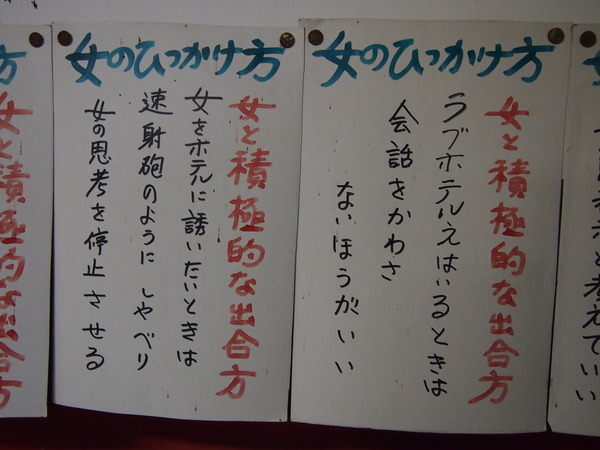 女のひっかけ方
女と積極的な出合方
ラブホテルえはいるときは
会話をかわさ
ないほうがいい
女のひっかけ方
女と積極的な出合方
女をホテルに誘いたいときは
速射砲のように しゃべり
女の思考を停止させる
方
女と積極的な出合方